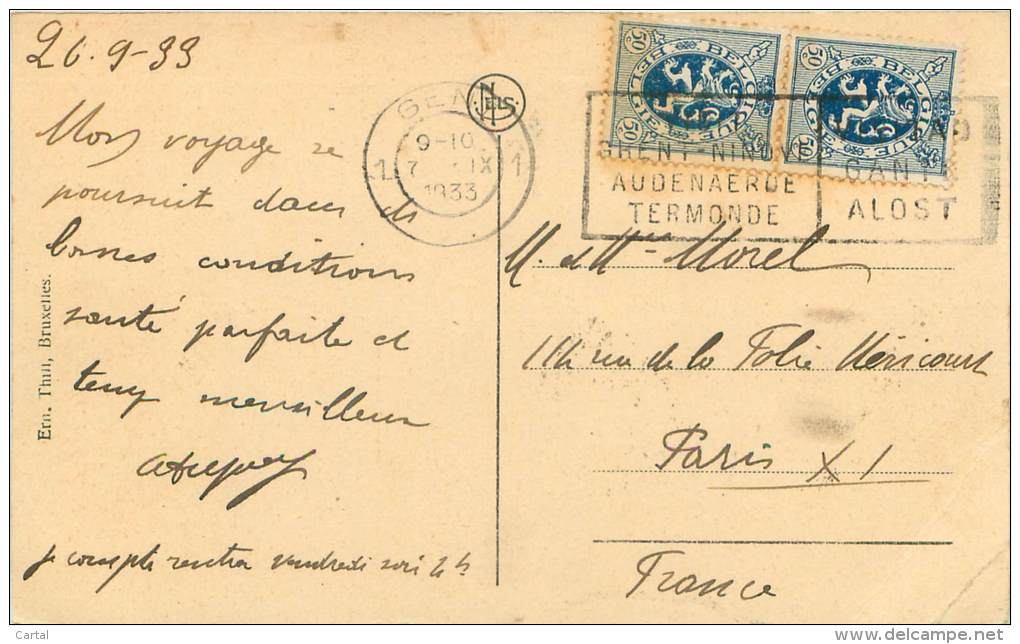 26-9-33
Mon voyage se
poursuit dans de
bonnes conditions
santé parfaite et
temps merveilleux
je compte rentrer vendredi soir
Ern. Thill, Bruxelles.
NELS
GENT
9-10
7 IX
1933
1 1
BELGIQUE BELGIE
50c 50c
BELGIQUE BELGIE
50c 50c
GHENT NINOVE
AUDENAERDE
TERMONDE
GAND
ALOST
M. et Mme Morel
114 rue de la Folie Méricourt
Paris XI
France
Cartal
www.delcampe.net